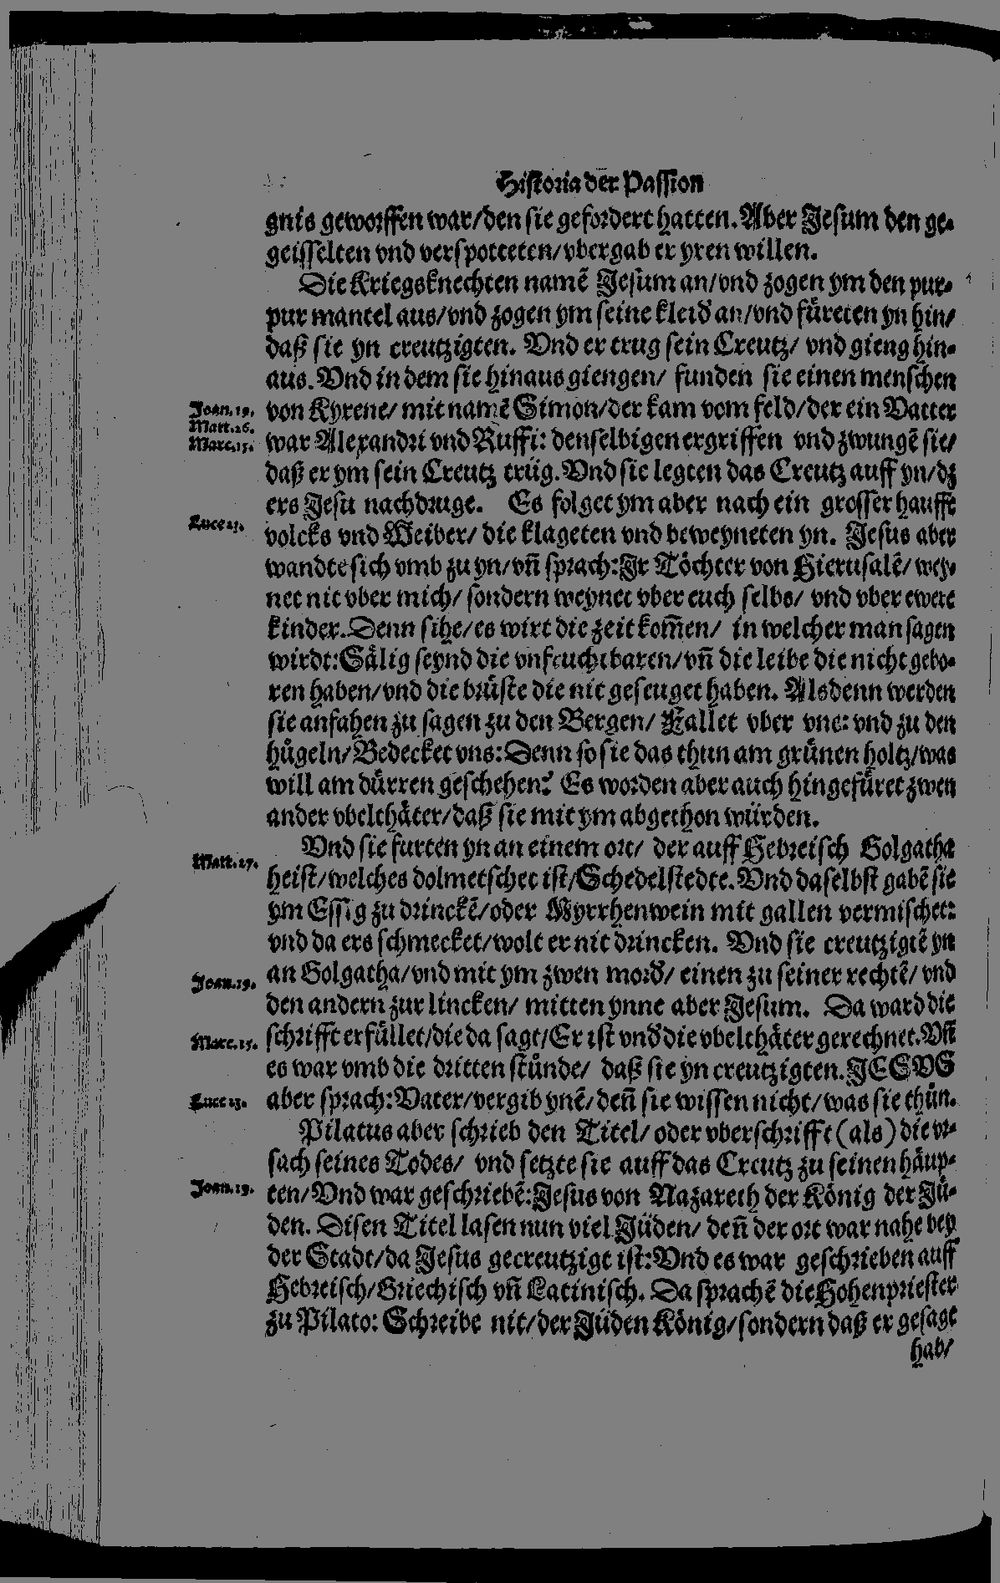 Historia der Passion
gnis geworffen war/den sie gefordert hatten. Aber Jesum den ge-
geisselten vnd verspotteten/vbergab er yren willen.
Die Kriegsknechten namē Jesum an/vnd zogen ym den pur-
pur mantel aus/vnd zogen ym seine kleid an/vnd füreten yn hin/
daß sie yn creutzigten. Vnd er trug sein Creutz/ vnd gieng hin-
aus. Vnd in dem sie hinaus giengen/ funden sie einen menschen
Joan.19. von Kyrene/ mit namē Simon/der kam vom feld/der ein Vatter
Matt.26.
Marc.15. war Alexandri vnd Ruffi: denselbigen ergriffen vnd zwungē sie/
daß er ym sein Creutz trüg. Vnd sie legten das Creutz auff yn/dz
ers Jesu nachdruge. Es folget ym aber nach ein grosser hauffe
Luce 23. volcks vnd Weiber/ die klageten vnd beweyneten yn. Jesus aber
wandte sich vmb zu yn/vn̄ sprach: Ir Töchter von Hierusalē/ wey-
net nit vber mich/ sondern weynet vber euch selbs/ vnd vber ewere
kinder. Denn sihe/es wirt die zeit kom̄en/ in welcher man sagen
wirdt: Sälig seynd die vnfruchtbaren/vn̄ die leibe die nicht gebo-
ren haben/vnd die brüste die nit geseuget haben. Alsdenn werden
sie anfahen zu sagen zu den Bergen/ Fallet vber vns: vnd zu den
hügeln/Bedecket vns: Denn so sie das thun am grünen holtz/was
will am dürren geschehen? Es worden aber auch hingefüret zwen
ander vbelthäter/daß sie mit ym abgethon würden.
Vnd sie furten yn an einem ort/ der auff Hebreisch Golgatha
Matt.27. heist/welches dolmetschet ist/Schedelstedte. Vnd daselbst gabē sie
ym Essig zu drinckē/oder Myrrhenwein mit gallen vermischet:
vnd da ers schmecket/wolt er nit drincken. Vnd sie creutzigtē yn
Joan.19. an Golgatha/vnd mit ym zwen mord/ einen zu seiner rechtē/ vnd
den andern zur lincken/ mitten ynne aber Jesum. Da ward die
Marc.15. schrifft erfüllet/die da sagt/Er ist vnd die vbelthäter gerechnet. Vn̄
es war vmb die dritten stünde/ daß sie yn creutzigten. JESVS
Luce 23. aber sprach: Vater/vergib ynē/den̄ sie wissen nicht/was sie thün.
Pilatus aber schrieb den Titel/ oder vberschrifft (als) die vr-
sach seines Todes/ vnd setzte sie auff das Creutz zu seinen häup-
Joan.19. ten/Vnd war geschriebē: Jesus von Nazareth der König der Jü-
den. Disen Titel lasen nun viel Jüden/ den̄ der ort war nahe bey
der Stadt/da Jesus gecreutzigt ist: Vnd es war geschrieben auff
Hebreisch/Griechisch vn̄ Latinisch. Da sprachē die Hohenpriester
zu Pilato: Schreibe nit/der Jüden König/sondern daß er gesagt
hab/